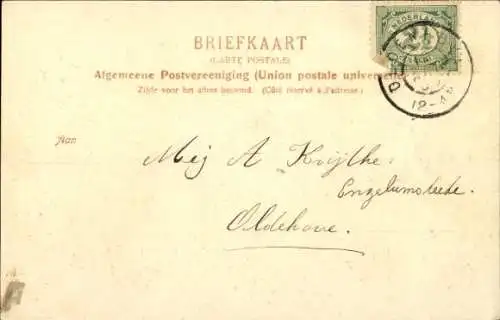 BRIEFKAART
(CARTE POSTALE)
Algemeene Postvereeniging (Union postale universelle)
Zijde voor het adres bestemd. (Côté réservé à l'adresse.)
NEDERLAND
12-
Aan
Mej A Kuijthe.
Engelumstede.
Oldehove.